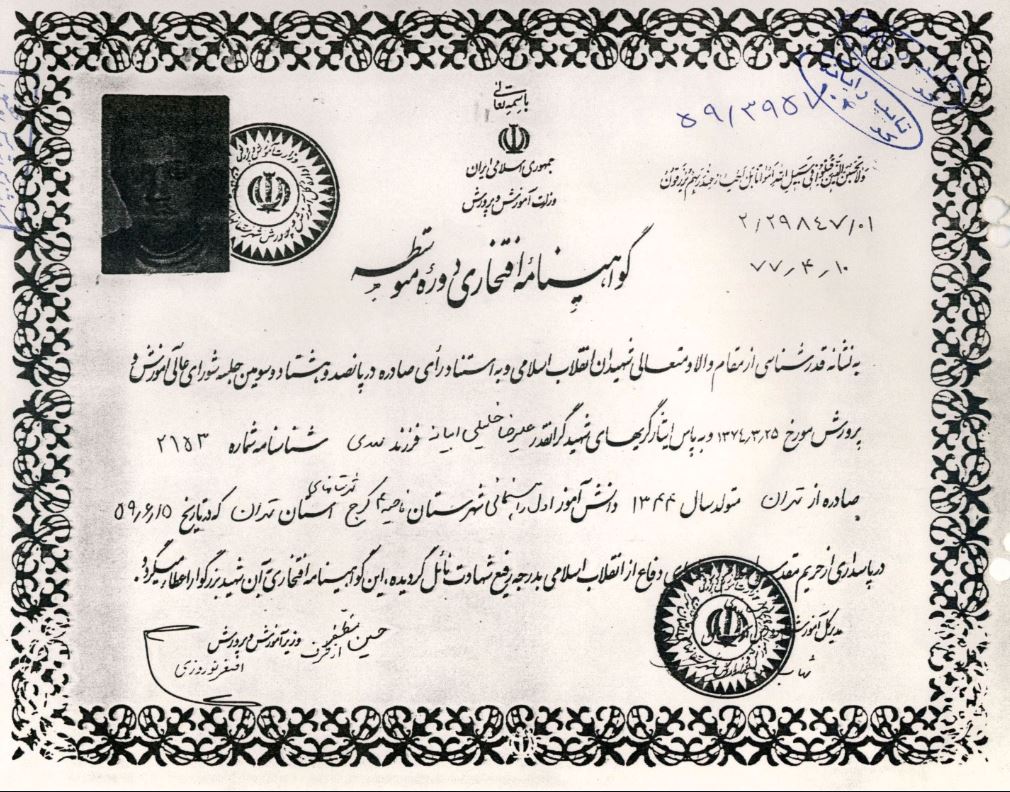 باسمه تعالی
جمهوری اسلامی ایران
وزارت آموزش و پرورش
۵۹/۳۹۵۱۷
تایپ رایانه
ولاتحسبن الذین قتلوا فی سبیل الله امواتا بل احیاء عند ربهم یرزقون
۲/۲۹۸۴۷/۰۱
۷۷/۴/۱۰
گواهینامه افتخاری دوره متوسطه
به نشانه قدرشناسی از مقام والا و متعالی شهیدان انقلاب اسلامی و به استناد رأی صادره در پانصد و هشتاد و سومین جلسه شورای عالی آموزش و
پرورش مورخ ۱۳۷۴/۳/۲۵ و به پاس ایثارگریهای شهید گرانقدر علیرضا خلیلی ابیانه فرزند شناسنامه شماره ۲۱۵۳
صادره از تهران متولد سال ۱۳۴۴ دانش آموز اول راهنمائی شهرستان ناحیه ۴ کرج استان تهران که در تاریخ ۵۹/۶/۱۵
در پاسداری از حریم دفاع از انقلاب اسلامی بدرجه رفیع شهادت نائل گردیده، این گواهینامه افتخاری به آن شهید بزرگوار اعطاء میگردد.
مدیر کل آموزش
حسین مظفر
وزیر آموزش و پرورش
از طرف
اصغر نوروزی